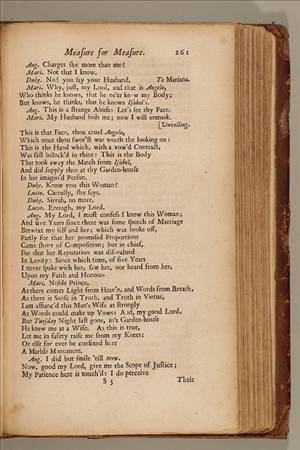 Measure for Measure. 261
Ang. Charges she more than me?
Mari. Not that I know.
Duke. No? you say your Husband. To Mariana.
Mari. Why, just, my Lord, and that is Angelo,
Who thinks he knows, that he ne'er knew my Body;
But knows, he thinks, that he knows Isabel's.
Ang. This is a strange Abuse: Let's see thy Face.
Mari. My Husband bids me; now I will unmask.
[Unveiling.
This is that Face, thou cruel Angelo,
Which once thou swor'st was worth the looking on:
This is the Hand which, with a vow'd Contract,
Was fast belock'd in thine: This is the Body
That took away the Match from Isabel,
And did supply thee at thy Garden-house
In her imagin'd Person.
Duke. Know you this Woman?
Lucio. Carnally, she says.
Duke. Sirrah, no more.
Lucio. Enough, my Lord.
Ang. My Lord, I must confess I know this Woman;
And five Years since there was some speech of Marriage
Betwixt my self and her; which was broke off,
Partly for that her promised Proportions
Came short of Composition; but in chief,
For that her Reputation was dis-valued
In Levity: Since which time, of five Years
I never spake with her, saw her, nor heard from her,
Upon my Faith and Honour.
Mari. Noble Prince,
As there comes Light from Heav'n, and Words from Breath,
As there is Sense in Truth, and Truth in Virtue,
I am affianc'd this Man's Wife as strongly
As Words could make up Vows: And, my good Lord,
But Tuesday Night last gone, in's Garden-house
He knew me as a Wife. As this is true,
Let me in safety raise me from my Knees;
Or else for ever be confixed here
A Marble Monument.
Ang. I did but smile 'till now.
Now, good my Lord, give me the Scope of Justice;
My Patience here is touch'd: I do perceive
S 3 These